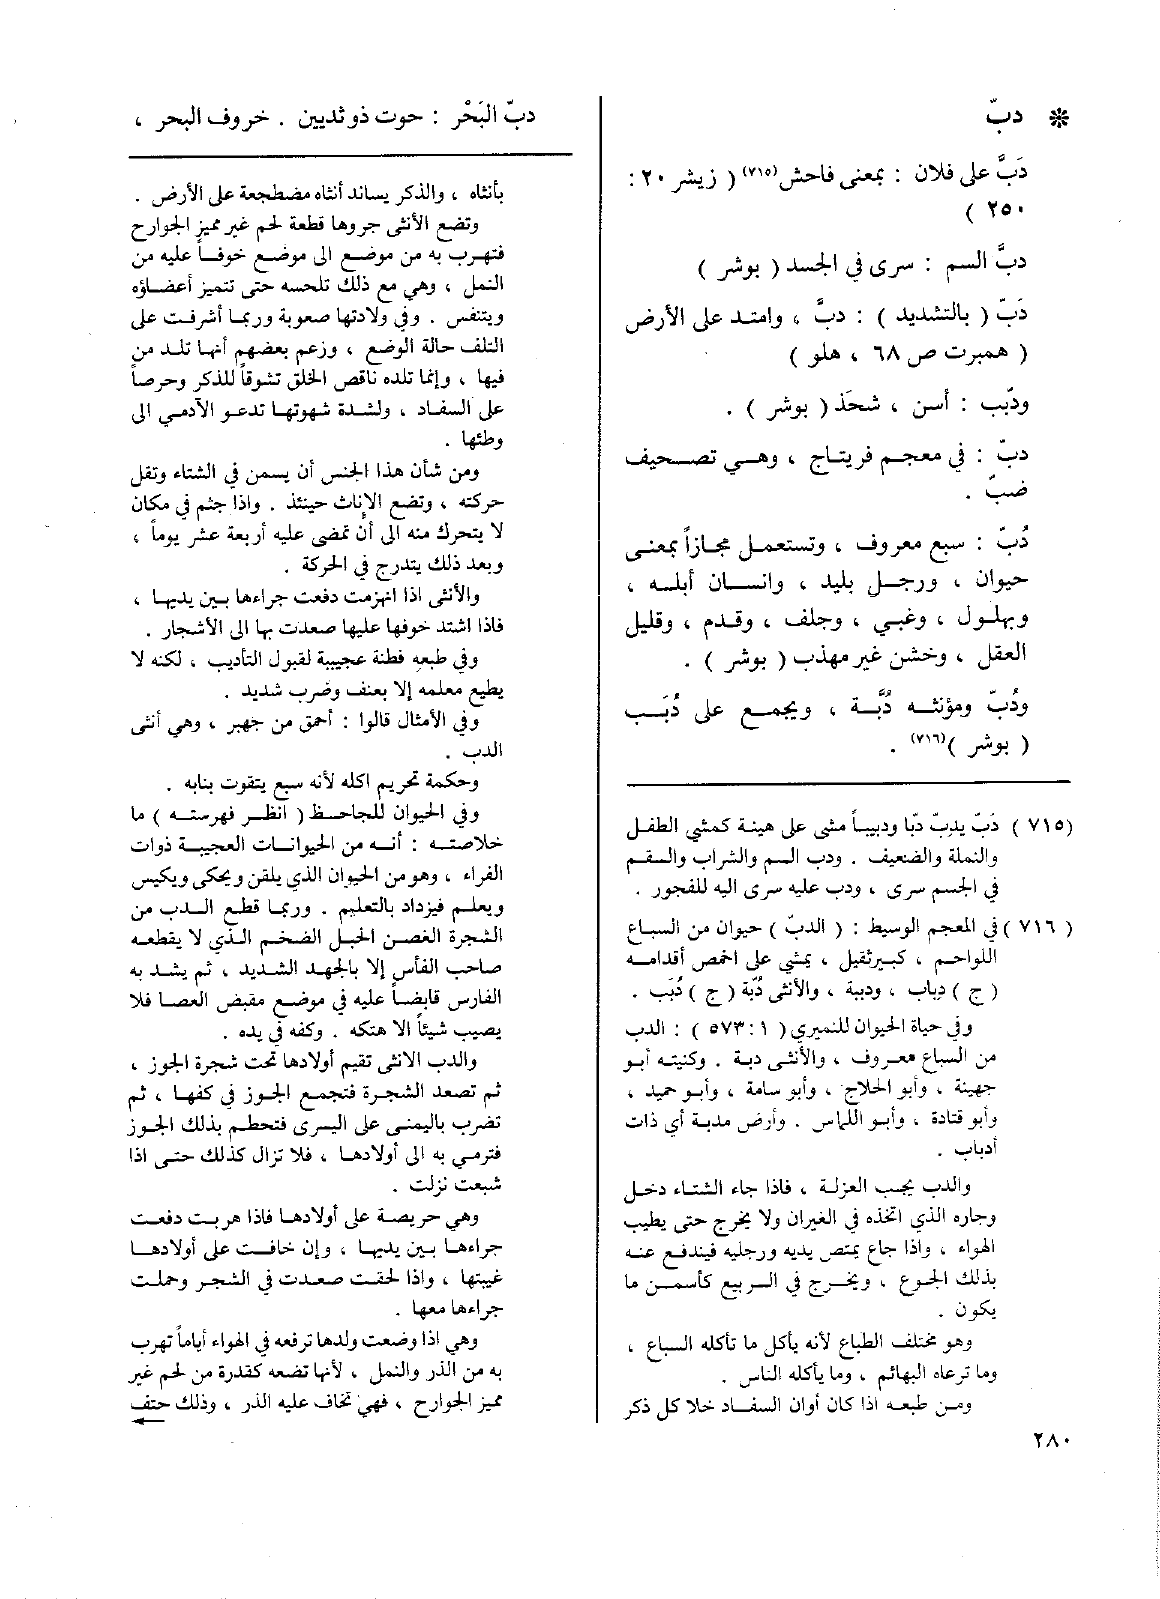 ❊ دبّ
دَبَّ على فلان : بمعنى فاحش(٧١٥) ( زيشر ٢٠ :
٢٥٠ )
دبَّ السم : سرى في الجسد ( بوشر )
دَبّ ( بالتشديد ) : دبَّ ، وامتد على الأرض
( همبرت ص ٦٨ ، هلو )
ودّبب : أسن ، شحَذ ( بوشر ) .
دبّ : في معجم فريتاج ، وهي تصحيف
ضبّ .
دُبّ : سبع معروف ، وتستعمل مجازاً بمعنى
حيوان ، ورجل بليد ، وانسان أبله ،
وبهلول ، وغبي ، وجلف ، وقدم ، وقليل
العقل ، وخشن غير مهذب ( بوشر ) .
ودُبّ ومؤنثه دُبَّة ، ويجمع على دُبَب
( بوشر )(٧١٦) .
(٧١٥ ) دَبّ يدِبّ دبّا ودبيباً مشى على هينة كمشي الطفل
والنملة والضعيف . ودب السم والشراب والسقم
في الجسم سرى ، ودب عليه سرى اليه للفجور .
( ٧١٦ ) في المعجم الوسيط : ( الدبّ ) حيوان من السباع
اللواحم ، كبير ثقيل ، يمشي على اخمص أقدامه
( ج ) دباب ، ودببة ، والأنثى دُبّة ( ج ) دُبَب .
وفي حياة الحيوان للنميري ( ١ : ٥٧٣ ) : الدب
من السباع معروف ، والأنثى دبة . وكنيته أبو
جهينة ، وأبو الحلاج ، وأبو سامة ، وأبو حميد ،
وأبو قتادة ، وأبو اللماس . وأرض مدبة أي ذات
أدباب .
والدب يحب العزلة ، فاذا جاء الشتاء دخل
وجاره الذي اتخذه في الغيران ولا يخرج حتى يطيب
الهواء ، واذا جاع يمتص يديه ورجليه فيندفع عنه
بذلك الجوع ، ويخرج في الربيع كأسمن ما
يكون .
وهو مختلف الطباع لأنه يأكل ما تأكله السباع ،
وما ترعاه البهائم ، وما يأكله الناس .
ومن طبعه اذا كان أوان السفاد خلا كل ذكر
دبّ البَحْر : حوت ذو ثديين . خروف البحر ،
بأنثاه ، والذكر يساند أنثاه مضطجعة على الأرض .
وتضع الأنثى جروها قطعة لحم غير مميز الجوارح
فتهرب به من موضع الى موضع خوفاً عليه من
النمل ، وهي مع ذلك تلحسه حتى تتميز أعضاؤه
ويتنفس . وفي ولادتها صعوبة وربما أشرفت على
التلف حالة الوضع ، وزعم بعضهم أنها تلد من
فيها ، وإنما تلده ناقص الخلق تشوقاً للذكر وحرصاً
على السفاد ، ولشدة شهوتها تدعو الآدمي الى
وطئها .
ومن شأن هذا الجنس أن يسمن في الشتاء وتقل
حركته ، وتضع الإناث حينئذ . واذا جثم في مكان
لا يتحرك منه الى أن تمضي عليه أربعة عشر يوماً ،
وبعد ذلك يتدرج في الحركة .
والأنثى اذا انهزمت دفعت جراءها بين يديها ،
فاذا اشتد خوفها عليها صعدت بها الى الأشجار .
وفي طبعه فطنة عجيبة لقبول التأديب ، لكنه لا
يطيع معلمه إلا بعنف وضرب شديد .
وفي الأمثال قالوا : أحمق من جهبر ، وهي أنثى
الدب .
وحكمة تحريم اكله لأنه سبع يتقوت بنابه .
وفي الحيوان للجاحظ ( انظر فهرسته ) ما
خلاصته : أنه من الحيوانات العجيبة ذوات
الفراء ، وهو من الحيوان الذي يلقن ويحكى ويكيس
ويعلم فيزداد بالتعليم . وربما قطع الدب من
الشجرة الغصن الحبل الضخم الذي لا يقطعه
صاحب الفأس إلا بالجهد الشديد ، ثم يشد به
الفارس قابضاً عليه في موضع مقبض العصا فلا
يصيب شيئاً الا هتكه . وكفه في يده .
والدب الانثى تقيم أولادها تحت شجرة الجوز ،
ثم تصعد الشجرة فتجمع الجوز في كفها ، ثم
تضرب باليمنى على اليسرى فتحطم بذلك الجوز
فترمي به الى أولادها ، فلا تزال كذلك حتى اذا
شبعت نزلت .
وهي حريصة على أولادها فاذا هربت دفعت
جراءها بين يديها ، وإن خافت على أولادها
غيبتها ، واذا لحقت صعدت في الشجر وحملت
جراءها معها .
وهي اذا وضعت ولدها ترفعه في الهواء أياماً تهرب
به من الذر والنمل ، لأنها تضعه كفدرة من لحم غير
مميز الجوارح ، فهي تخاف عليه الذر ، وذلك حتف
٢٨٠